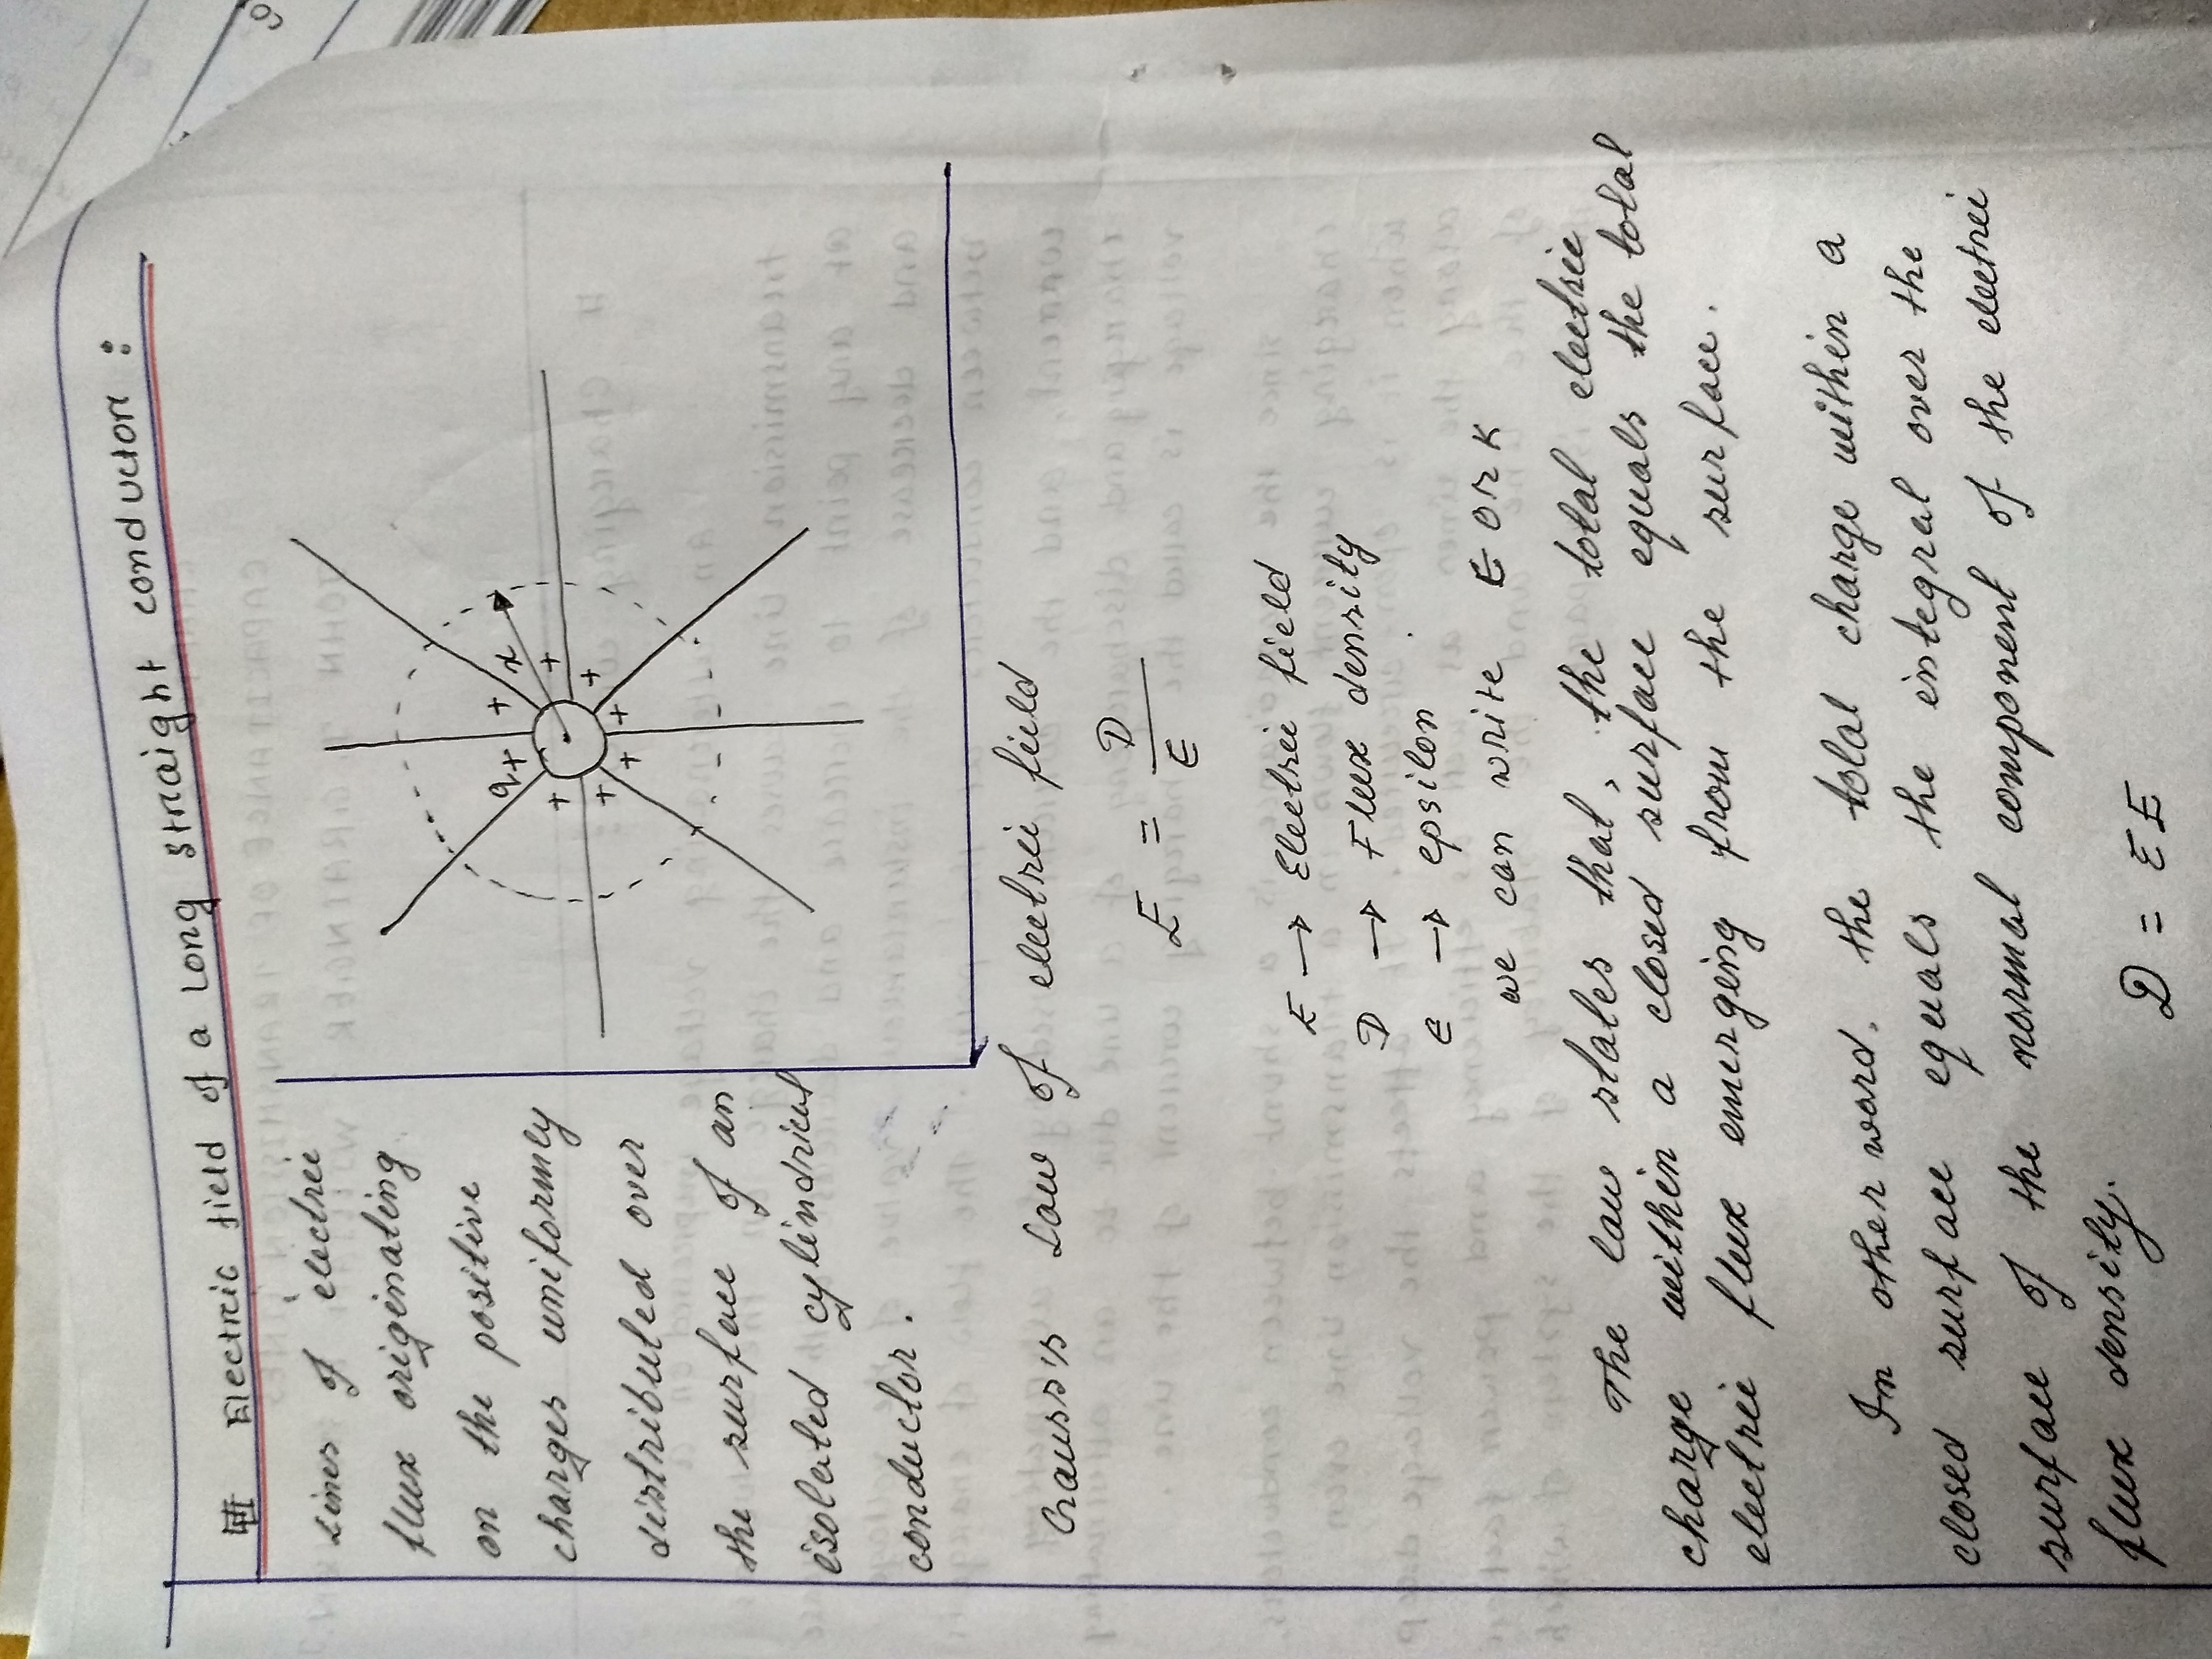 # Electric field of a Long straight conductor :
Lines of electric
flux originating
on the positive
charges uniformly
distributed over
the surface of an
isolated cylindrical
conductor.
q + + + + + + + +
x
Gauss's Law of electric field
E = D / ε
E → Electric field
D → Flux density
ε → epsilon
we can write E or K
The law states that, the total electric
charge within a closed surface equals the total
electric flux emerging from the surface.
In other word, the total charge within a
closed surface equals the integral over the
surface of the normal component of the electric
flux density.
D = εE